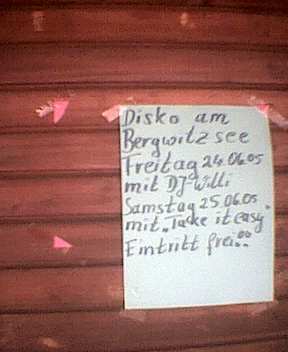 Disko am
Bergwitzsee
Freitag 24.06.05
mit DJ-Willi
Samstag 25.06.05.
mit „Take it easy"
Eintritt frei!!